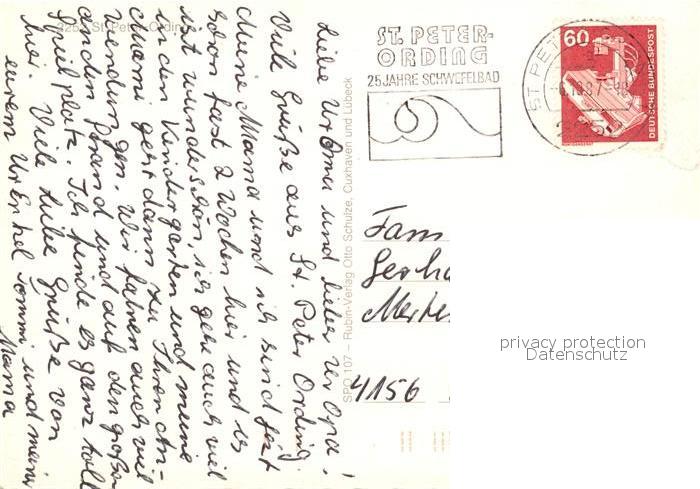 2252 St. Peter-Ording
Liebe UrOma und lieber Ur Opa!
Viele Grüße aus St. Peter Ording.
Meine Mama und ich sind jetzt
schon fast 2 Wochen hier und es
ist wunderschön, ich gehe auch viel
in den Kindergarten und meine
Mami geht dann zu Ihren An-
wendungen. Wir fahren auch viel
an den Strand und auf den großen
Spielplatz. Ich finde es ganz toll
hier. Viele liebe Grüße von
eurem Ur Enkel Tommi und meiner
Mama
SPO 107 – Rubin-Verlag Otto Schulze, Cuxhaven und Lübeck
ST. PETER-
ORDING
25 JAHRE SCHWEFELBAD
ST. PET
60
DEUTSCHE BUNDESPOST
RÖNTGENGERÄT
Fam
Gerha
Merte
4156
privacy protection
Datenschutz